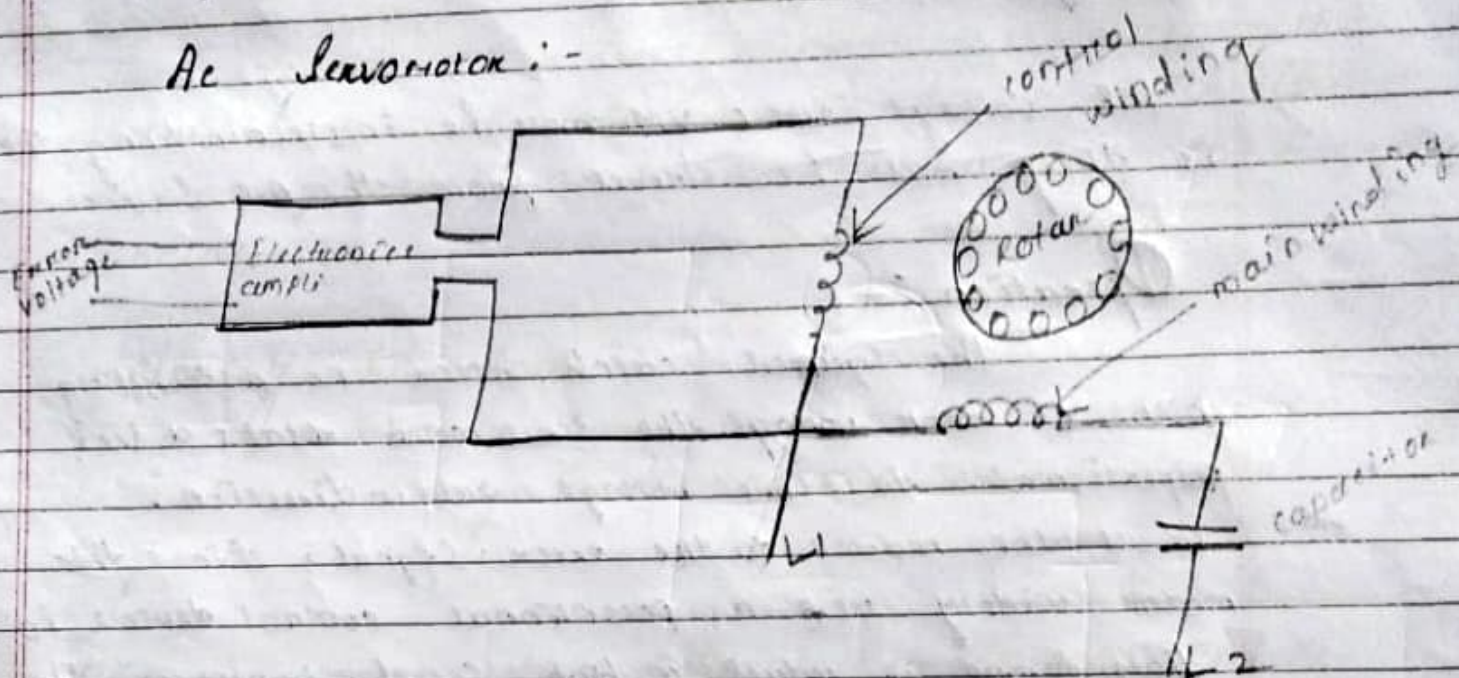 Ac Servomotor :-
control
winding
Error
voltage
Electronics
ampli
Rotar
main winding
capacitor
L1
L2